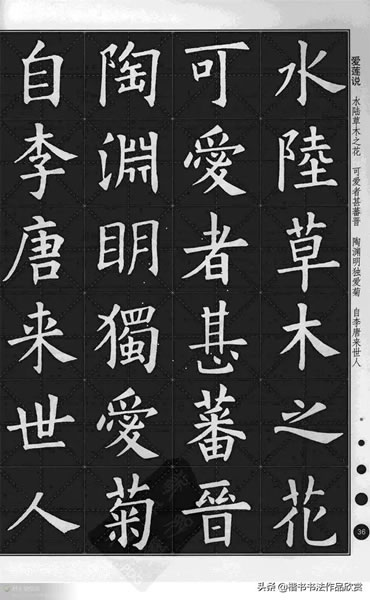 水陸草木之花
可愛者甚蕃晉
陶淵明獨愛菊
自李唐来世人
爱莲说 水陆草木之花 可爱者甚蕃晋 陶渊明独爱菊 自李唐来世人
36
头条@楷书书法作品欣赏